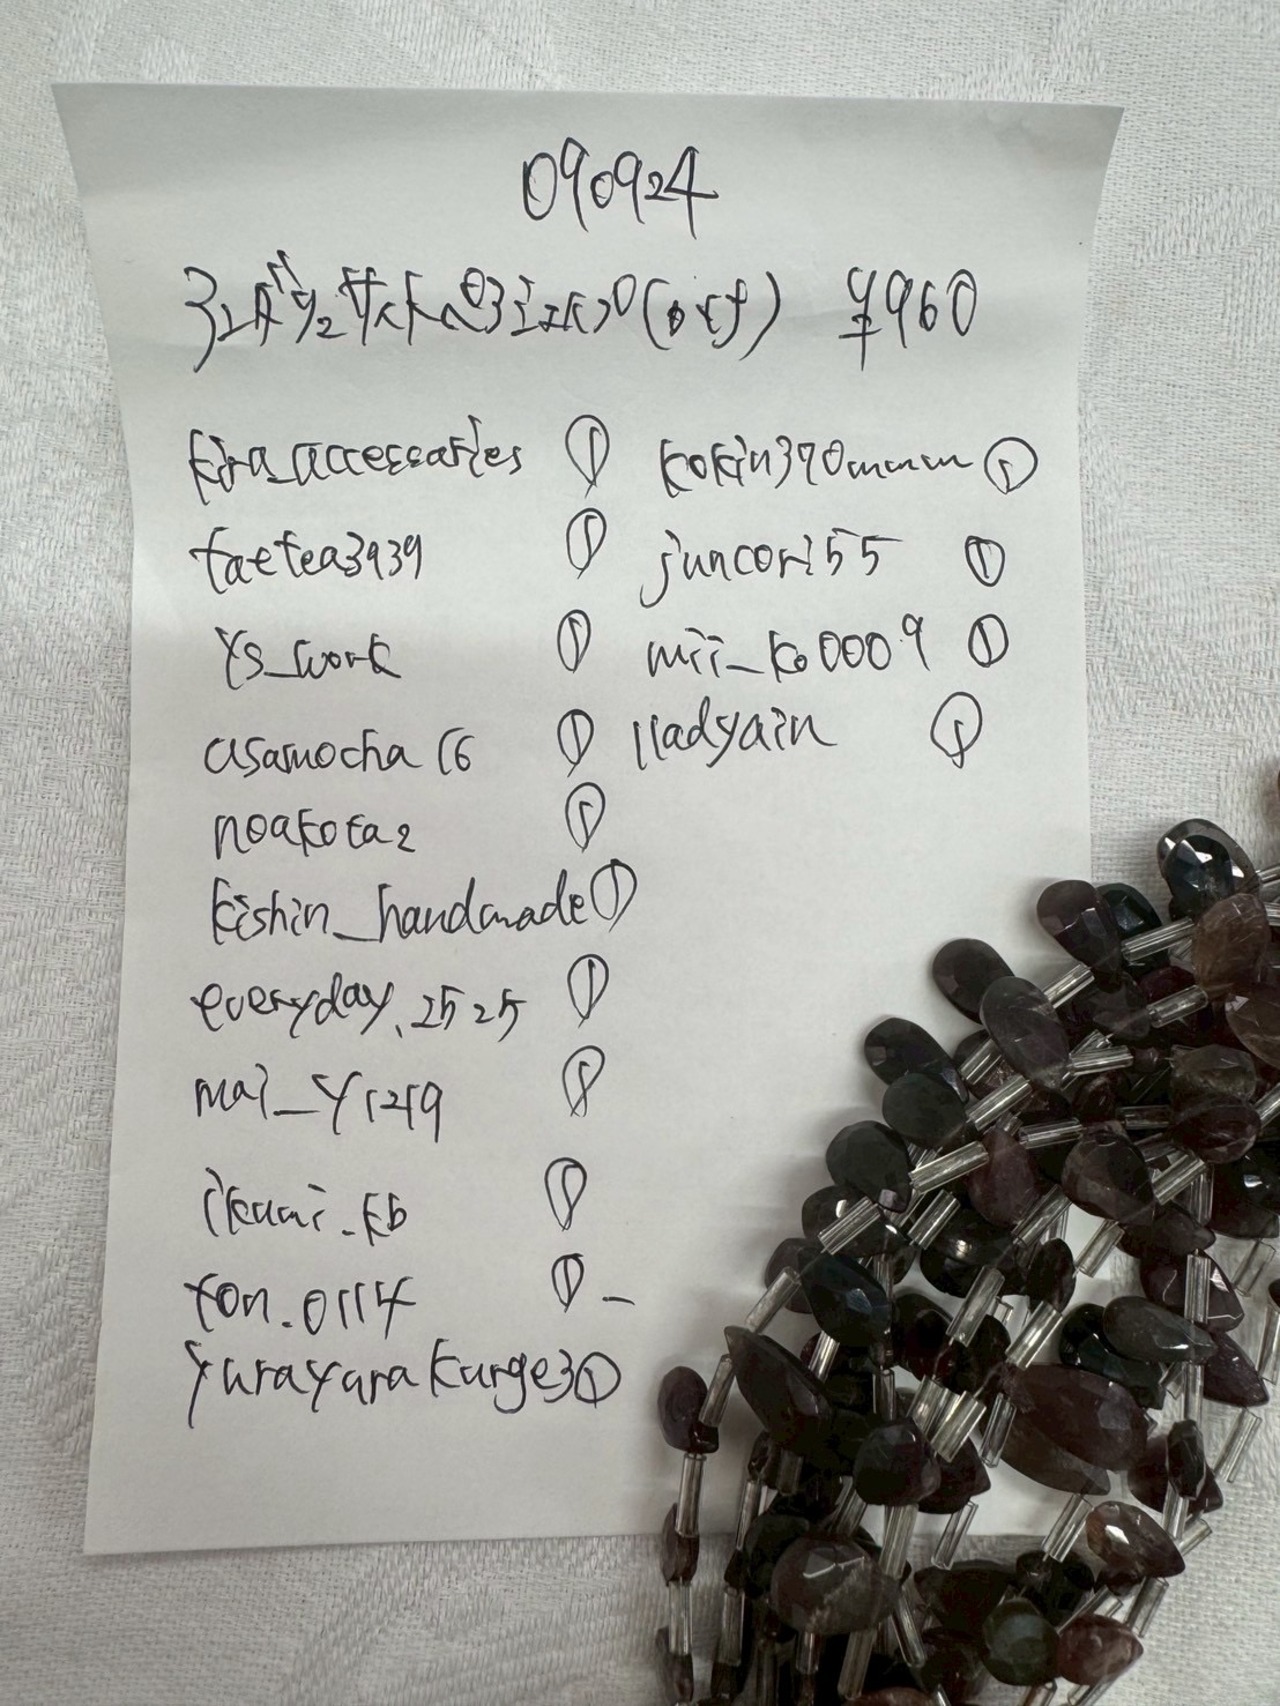 090924
¥960
kira_accessaries ①
taetea3939 ①
ys_work ①
asamocha16 ①
noakota2 ①
kishin_handmade ①
everyday.2525 ①
mai_y1219 ①
ikumi.kb ①
ton.0114 ①
yurayurakurage3 ①
kokin370mmm ①
juncori55 ①
mii_ko0009 ①
lladyain ①